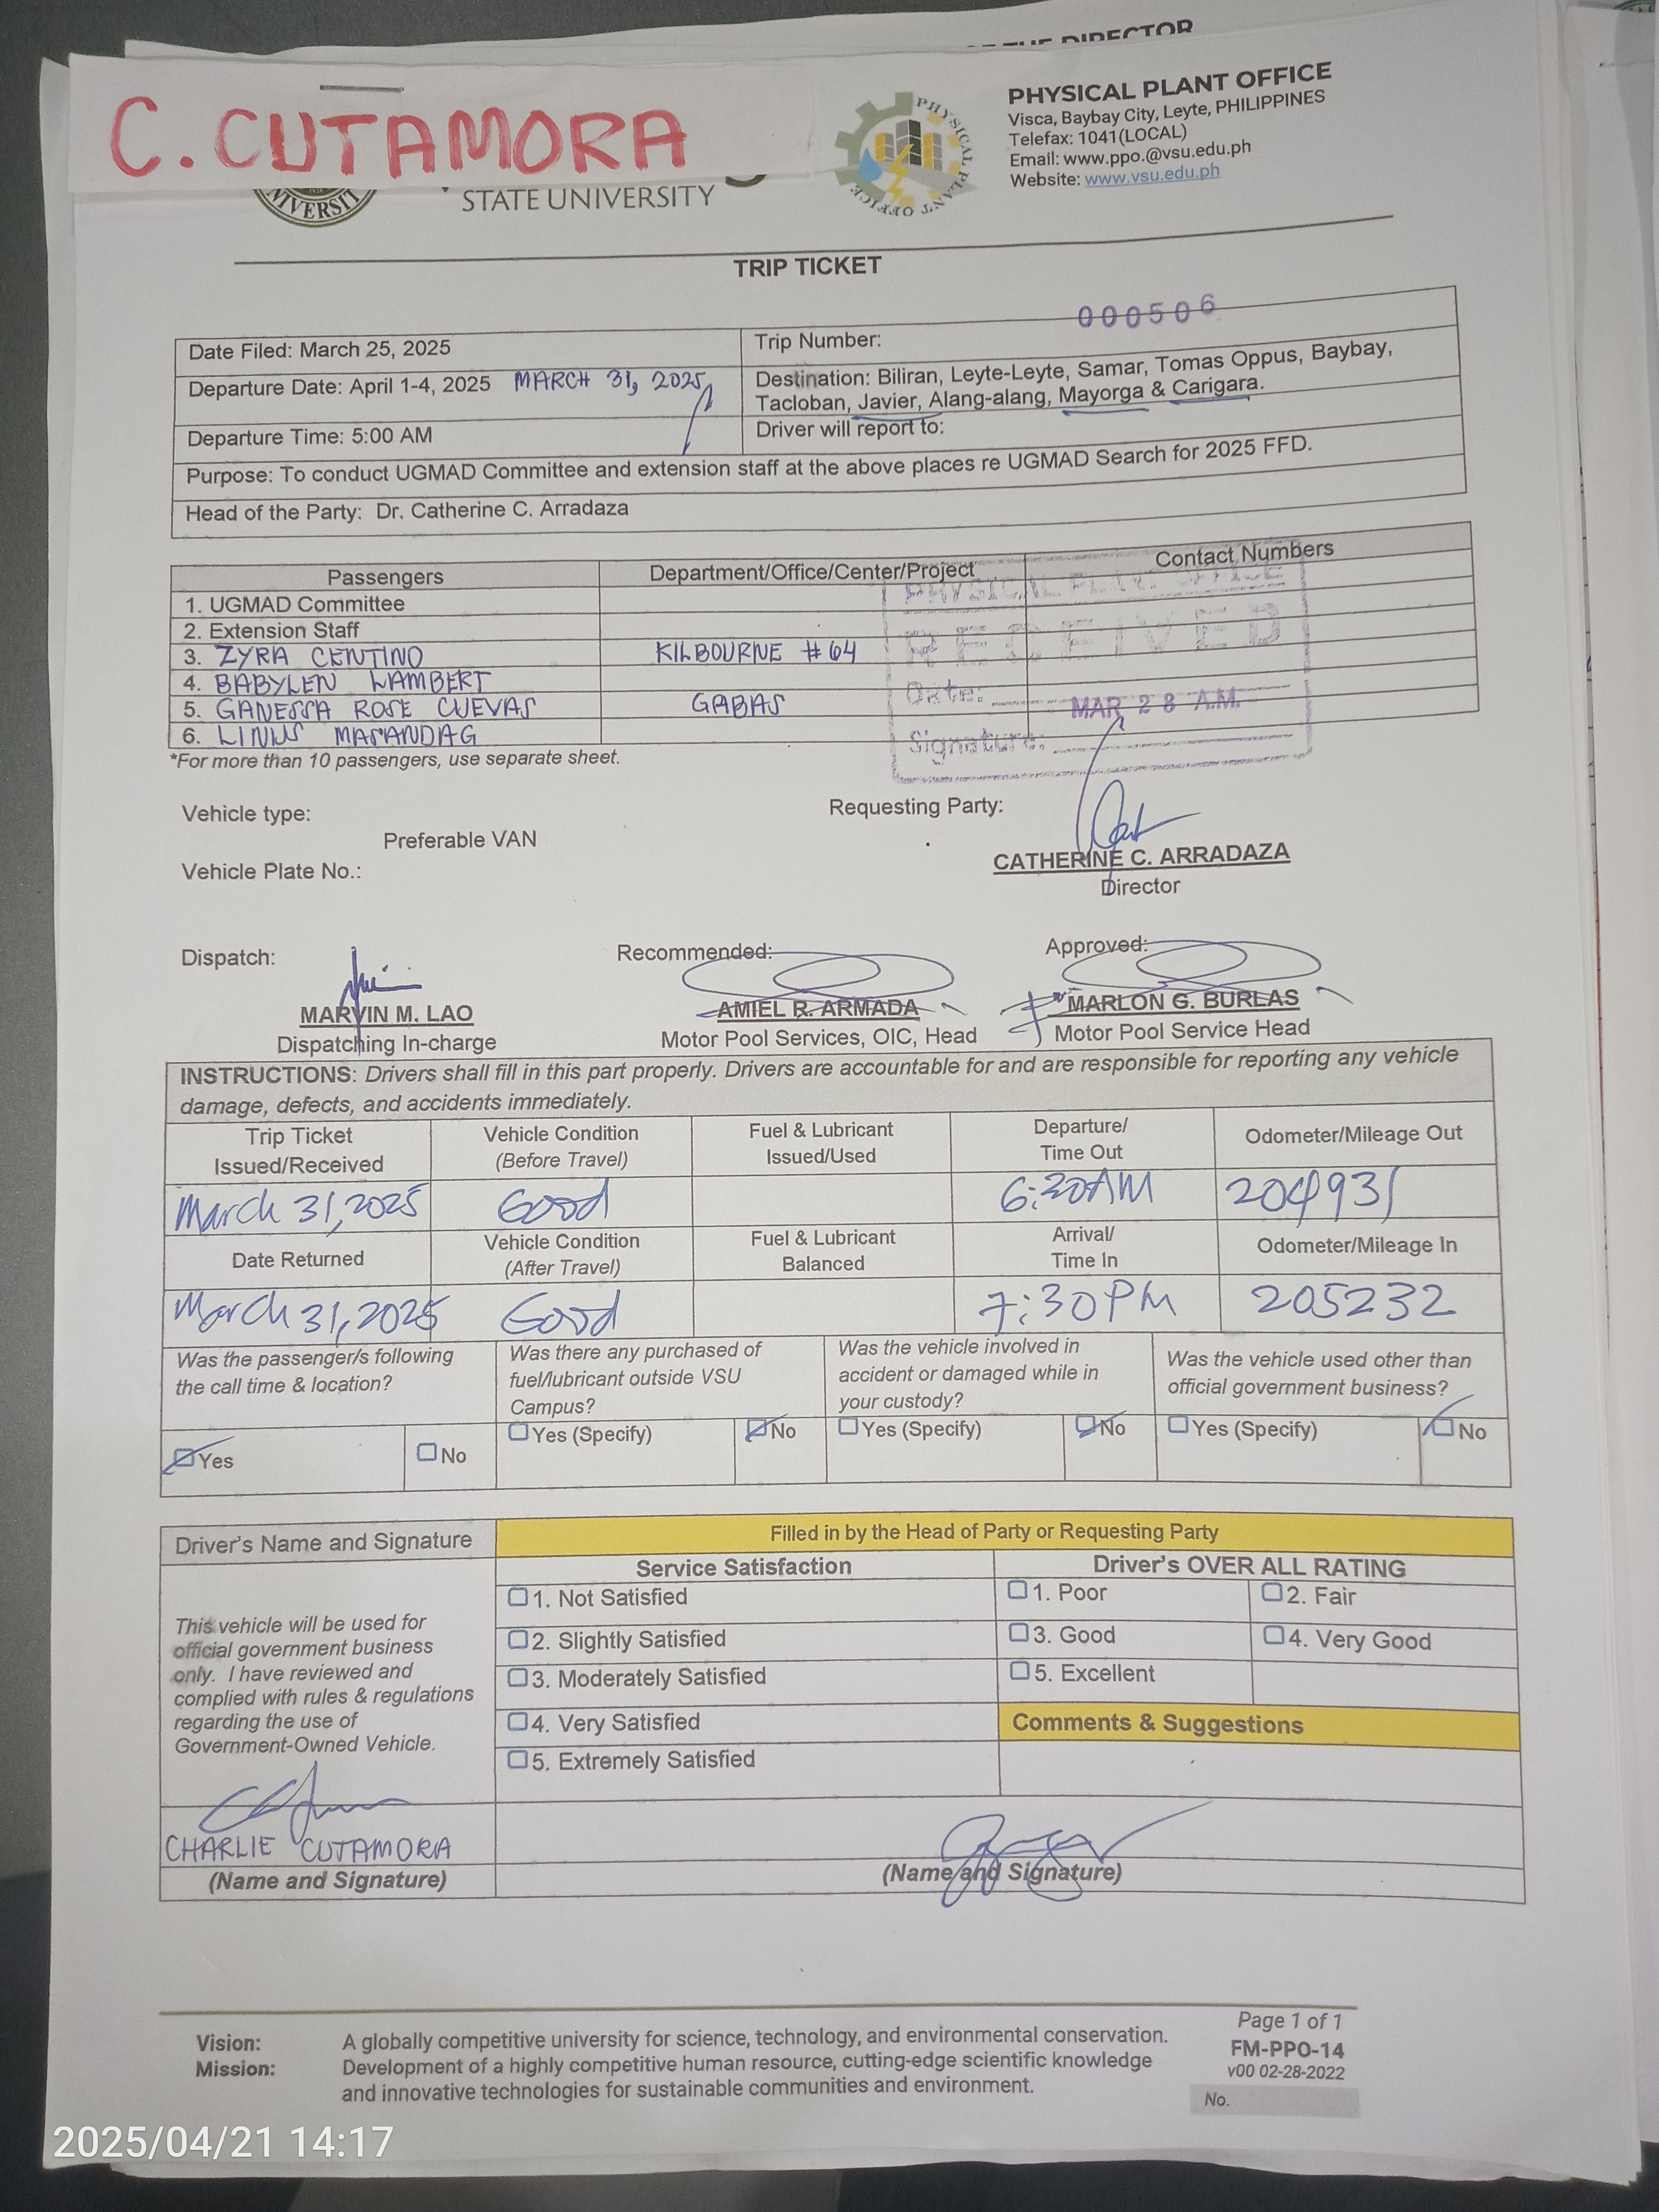 OF THE DIRECTOR
C. CUTAMORA
STATE UNIVERSITY
PHYSICAL PLANT OFFICE
PHYSICAL PLANT OFFICE
Visca, Baybay City, Leyte, PHILIPPINES
Telefax: 1041(LOCAL)
Email: www.ppo.@vsu.edu.ph
Website: www.vsu.edu.ph
TRIP TICKET
000506
Date Filed: March 25, 2025
Trip Number:
Departure Date: April 1-4, 2025 MARCH 31, 2025
Destination: Biliran, Leyte-Leyte, Samar, Tomas Oppus, Baybay,
Tacloban, Javier, Alang-alang, Mayorga & Carigara.
Departure Time: 5:00 AM
Driver will report to:
Purpose: To conduct UGMAD Committee and extension staff at the above places re UGMAD Search for 2025 FFD.
Head of the Party: Dr. Catherine C. Arradaza
Passengers Department/Office/Center/Project Contact Numbers
1. UGMAD Committee
2. Extension Staff
3. ZYRA CENTINO KILBOURNE #64
4. BABYLEN LAMBERT
5. GANESSA ROSE CUEVAS GABAS
6. LINUS MASANDAG
PHYSICAL PLANT OFFICE
RECEIVED
Date: MAR 28 A.M.
Signature:
*For more than 10 passengers, use separate sheet.
Vehicle type:
Preferable VAN
Vehicle Plate No.:
Requesting Party:
CATHERINE C. ARRADAZA
Director
Dispatch: Recommended: Approved:
MARVIN M. LAO AMIEL R. ARMADA MARLON G. BURLAS
Dispatching In-charge Motor Pool Services, OIC, Head Motor Pool Service Head
INSTRUCTIONS: Drivers shall fill in this part properly. Drivers are accountable for and are responsible for reporting any vehicle
damage, defects, and accidents immediately.
Trip Ticket
Issued/Received
Vehicle Condition
(Before Travel)
Fuel & Lubricant
Issued/Used
Departure/
Time Out
Odometer/Mileage Out
March 31,2025 Good 6:20AM 204931
Date Returned
Vehicle Condition
(After Travel)
Fuel & Lubricant
Balanced
Arrival/
Time In
Odometer/Mileage In
March 31,2025 Good 7:30PM 205232
Was the passenger/s following
the call time & location?
Was there any purchased of
fuel/lubricant outside VSU
Campus?
Was the vehicle involved in
accident or damaged while in
your custody?
Was the vehicle used other than
official government business?
Yes No Yes (Specify) No Yes (Specify) No Yes (Specify) No
Driver's Name and Signature
Filled in by the Head of Party or Requesting Party
Service Satisfaction Driver's OVER ALL RATING
1. Not Satisfied 1. Poor 2. Fair
2. Slightly Satisfied 3. Good 4. Very Good
3. Moderately Satisfied 5. Excellent
4. Very Satisfied Comments & Suggestions
5. Extremely Satisfied
This vehicle will be used for
official government business
only. I have reviewed and
complied with rules & regulations
regarding the use of
Government-Owned Vehicle.
CHARLIE CUTAMORA
(Name and Signature) (Name and Signature)
Vision: A globally competitive university for science, technology, and environmental conservation.
Mission: Development of a highly competitive human resource, cutting-edge scientific knowledge
and innovative technologies for sustainable communities and environment.
Page 1 of 1
FM-PPO-14
v00 02-28-2022
No.
2025/04/21 14:17